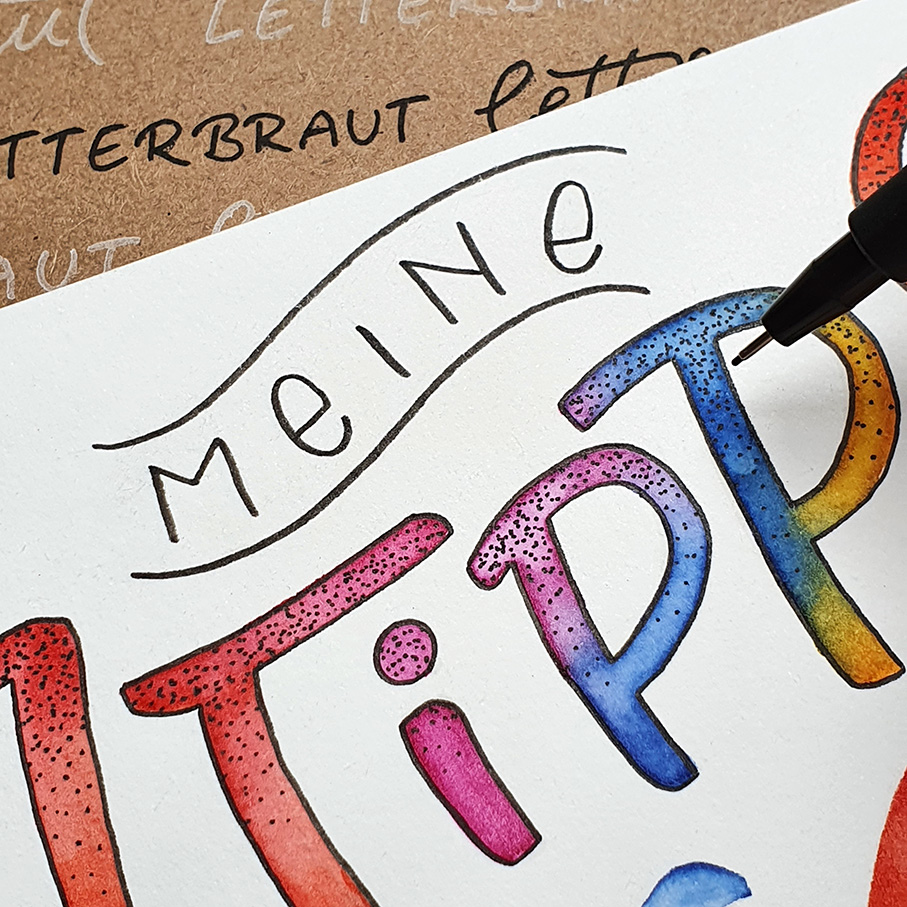 LETTERBRA
TTERBRAUT lette
AUT
MeINe
1 Tipp